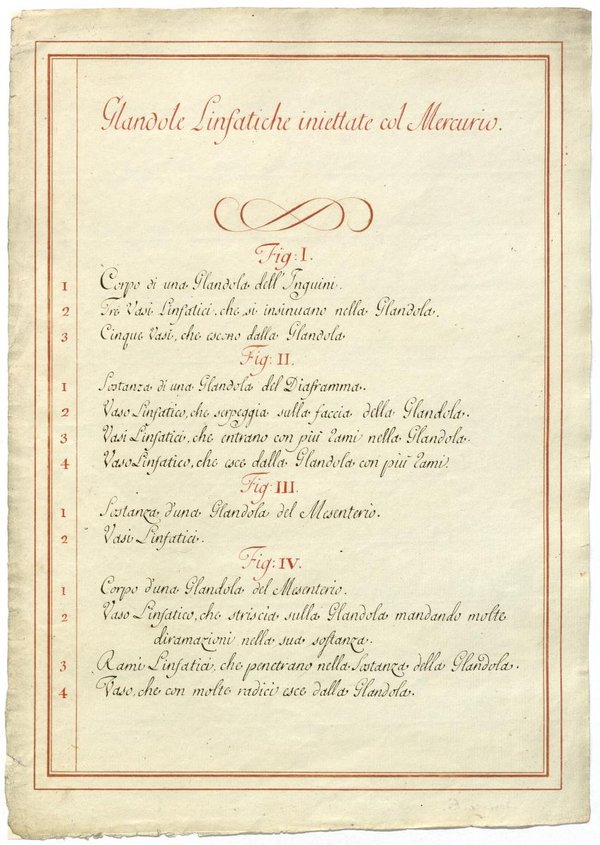 Glandole Linfatiche iniettate col Mercurio.
Fig: I.
1 Corpo di una Glandola dell'Inguini.
2 Tre Vasi Linfatici, che si insinuano nella Glandola.
3 Cinque Vasi, che escono dalla Glandola
Fig: II.
1 Sostanza di una Glandola del Diaframma.
2 Vaso Linfatico, che serpeggia sulla faccia della Glandola.
3 Vasi Linfatici, che entrano con più rami nella Glandola.
4 Vaso Linfatico, che esce dalla Glandola con più rami.
Fig: III.
1 Sostanza d'una Glandola del Mesenterio.
2 Vasi Linfatici.
Fig: IV.
1 Corpo d'una Glandola del Mesenterio.
2 Vaso Linfatico, che striscia sulla Glandola mandando molte
diramazioni nella sua sostanza.
3 Rami Linfatici, che penetrano nella Sostanza della Glandola.
4 Vaso, che con molte radici esce dalla Glandola.